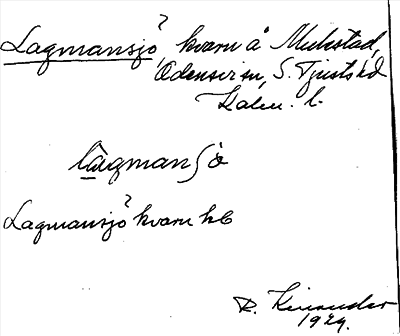 Lagmansjö, kvarn å Mulstad,
Odensvi sn, S. Tjusts hd
Kalm. l.
lagmansjö
Lagmansjö kvarn hb
R. Kinander
1929.